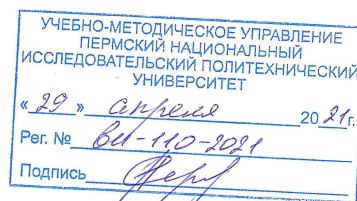 УЧЕБНО-МЕТОДИЧЕСКОЕ УПРАВЛЕНИЕ
ПЕРМСКИЙ НАЦИОНАЛЬНЫЙ
ИССЛЕДОВАТЕЛЬСКИЙ ПОЛИТЕХНИЧЕСКИЙ
УНИВЕРСИТЕТ
« 29 » апреля 20 21 г.
Рег. № ви-110-2021
Подпись